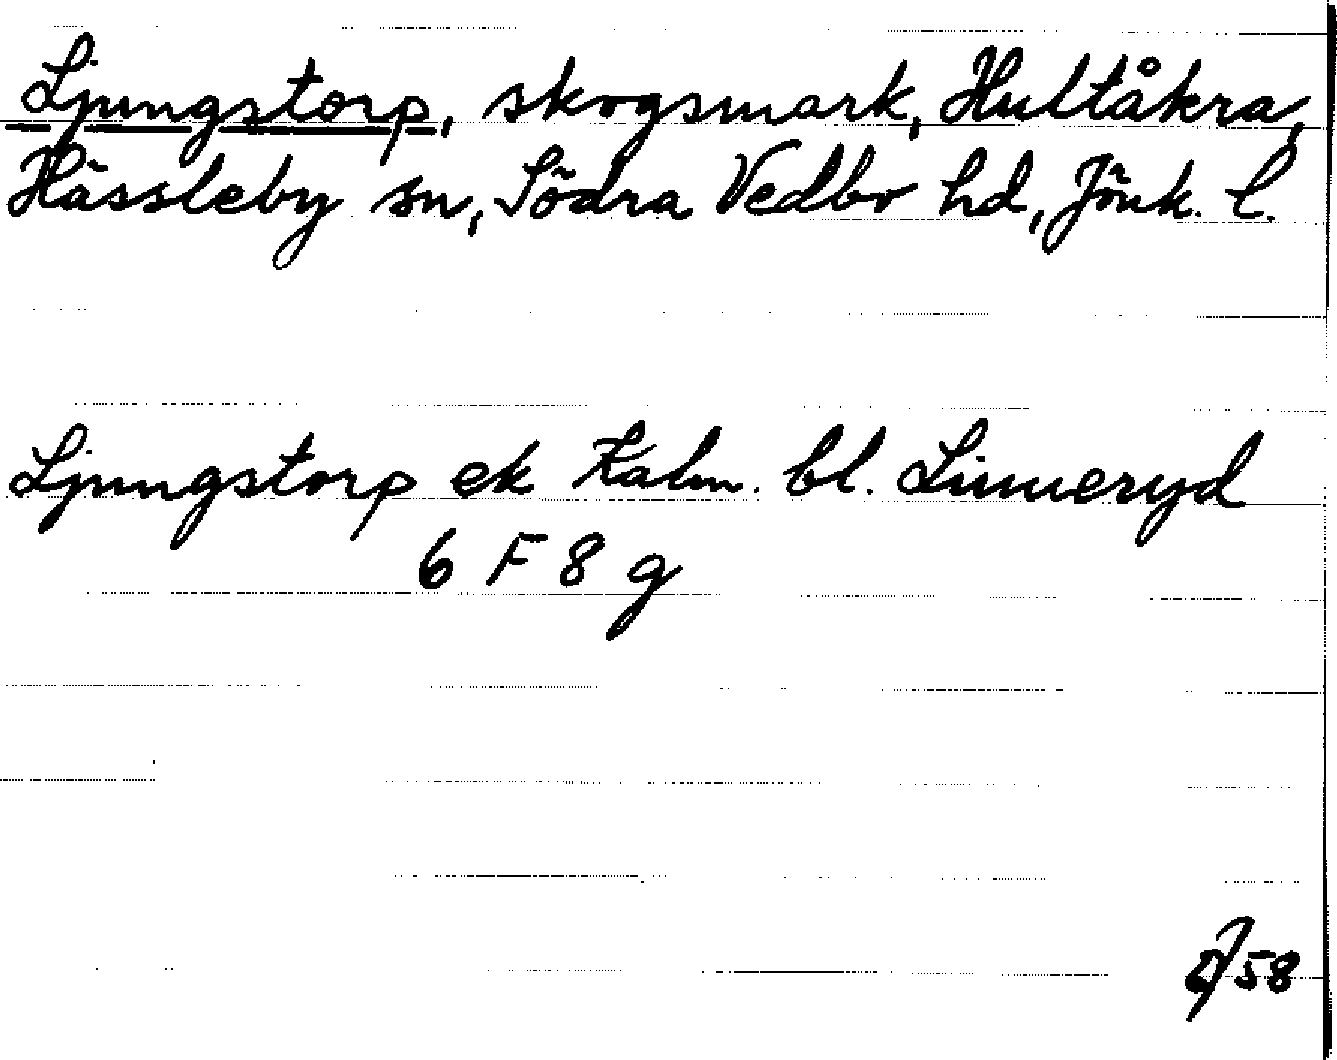 Ljungstorp, skogsmark, Hultåkra,
Hässleby sn, Södra Vedbo hd, Jönk. l.
Ljungstorp ek Kalm. bl. Linneryd
6 F 8 g
58